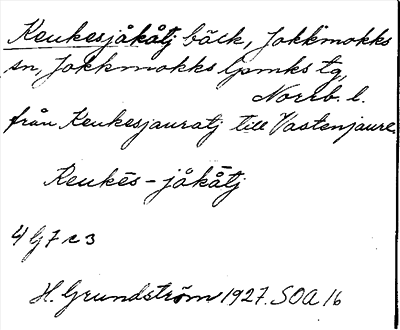 Keukesjåkåtj bäck, Jokkmokks
sn, Jokkmokks lpmks tg,
Norrb. l.
från Keukesjauratj till Vastenjaure.
Keukēs-jåkåtj
4 G 7 c 3
H. Grundström 1927. SOA 16